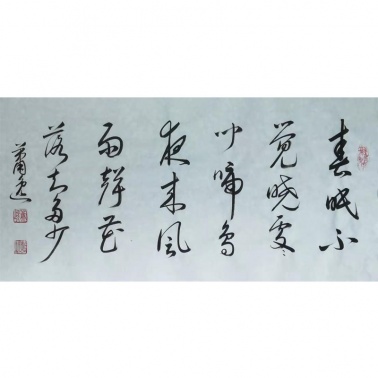 春眠不
觉晓处々
闻啼鸟
夜来风
雨声花
落知多少